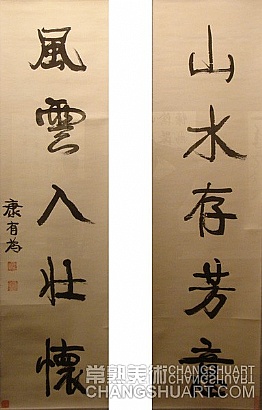 山水存芳意
風雲入壯懷
康有為
常熟美術 CHANGSHUART
CHANGSHUART.COM